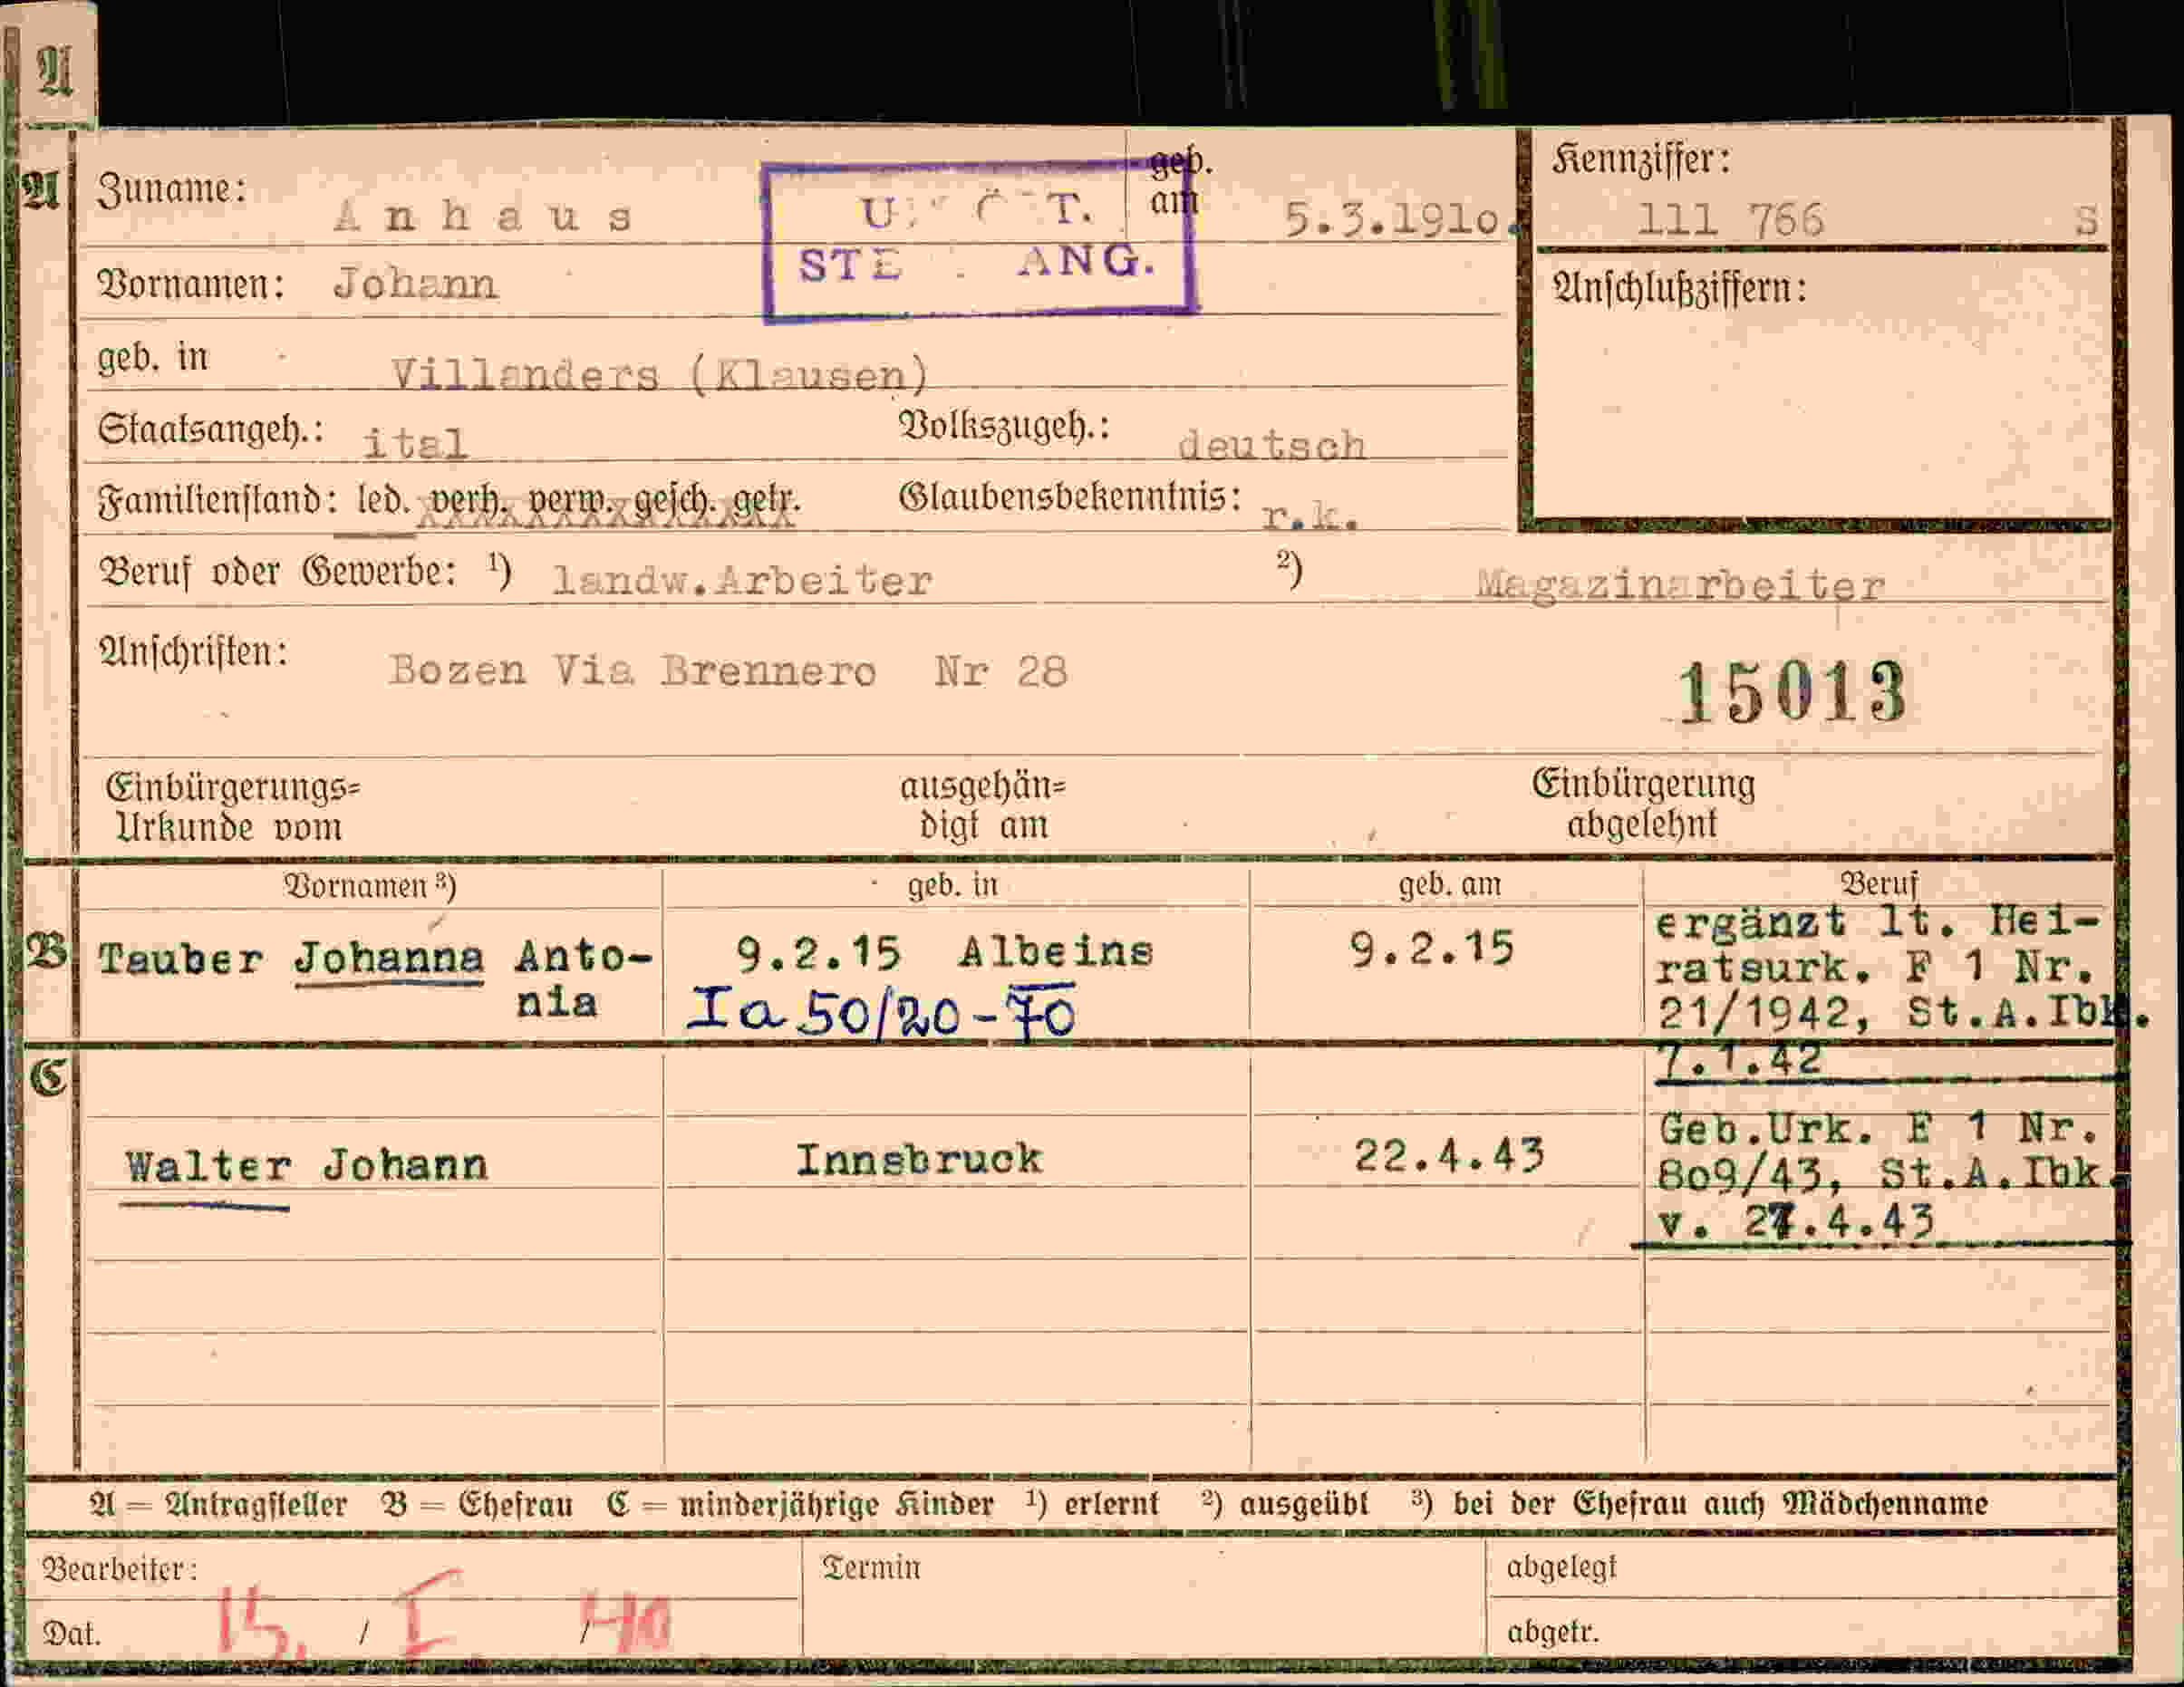 A
A Zuname: Anhaus geb. am 5.3.191o. Kennziffer: 111 766 S
Vornamen: Johann Anschlußziffern:
STE ANG.
geb. in Villanders (Klausen)
Staatsangeh.: ital Volkszugeh.: deutsch
Familienstand: led. verh. verw. gesch. getr. Glaubensbekenntnis: r.k.
Beruf oder Gewerbe: 1) landw.Arbeiter 2) Magazinarbeiter
Anschriften: Bozen Via Brennero Nr 28
15013
Einbürgerungs= ausgehän= Einbürgerung
Urkunde vom digt am abgelehnt
Vornamen 3) geb. in geb. am Beruf
B Tauber Johanna Anto- 9.2.15 Albeins 9.2.15 ergänzt lt. Hei-
nia Ia 50/20-70 ratsurk. F 1 Nr.
21/1942, St.A.Ibk.
C 7.1.42
Walter Johann Innsbruck 22.4.43 Geb.Urk. E 1 Nr.
809/43, St.A.Ibk.
v. 27.4.43
A = Antragsteller B = Ehefrau C = minderjährige Kinder 1) erlernt 2) ausgeübt 3) bei der Ehefrau auch Mädchenname
Bearbeiter: Termin abgelegt
Dat. 15. / I / 40 abgetr.